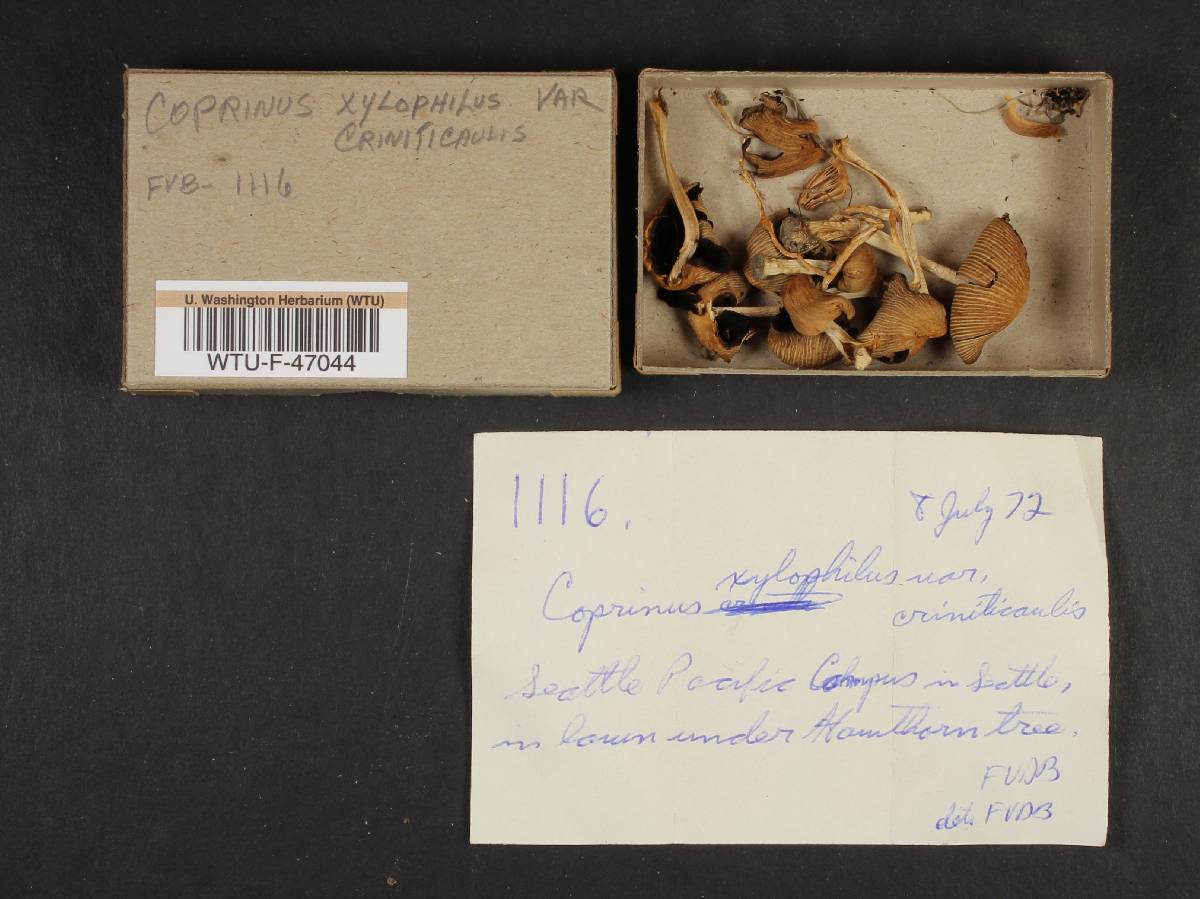 COPRINUS XYLOPHILUS VAR
CRINITICAULIS
FVB- 1116
U. Washington Herbarium (WTU)
WTU-F-47044
1116.
8 July 72
xylophilus var.
Coprinus criniticaulis
Seattle Pacific Campus in Seattle,
in lawn under Hawthorn tree.
FVDB
det. FVDB